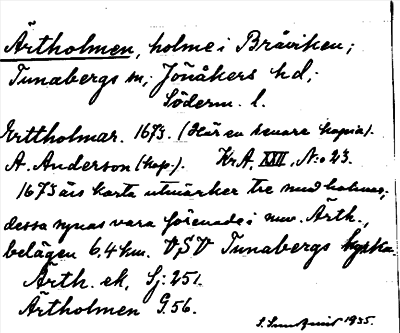 Ärtholmen, holme i Bråviken;
Tunabergs sn; Jönåkers hd;
Söderm. l.
Erttholmar. 1673. (Här en senare kopia).
A. Anderson (kop.). Kr.A. XXII. N:o 23.
1673 års karta utmärker tre små holmar;
dessa synas vara förenade i nuv. Ärth.,
belägen 6,4 km. VSV Tunabergs kyrka.
Ärth. ek, Sj: 251.
Ärtholmen G. 56.
1935.